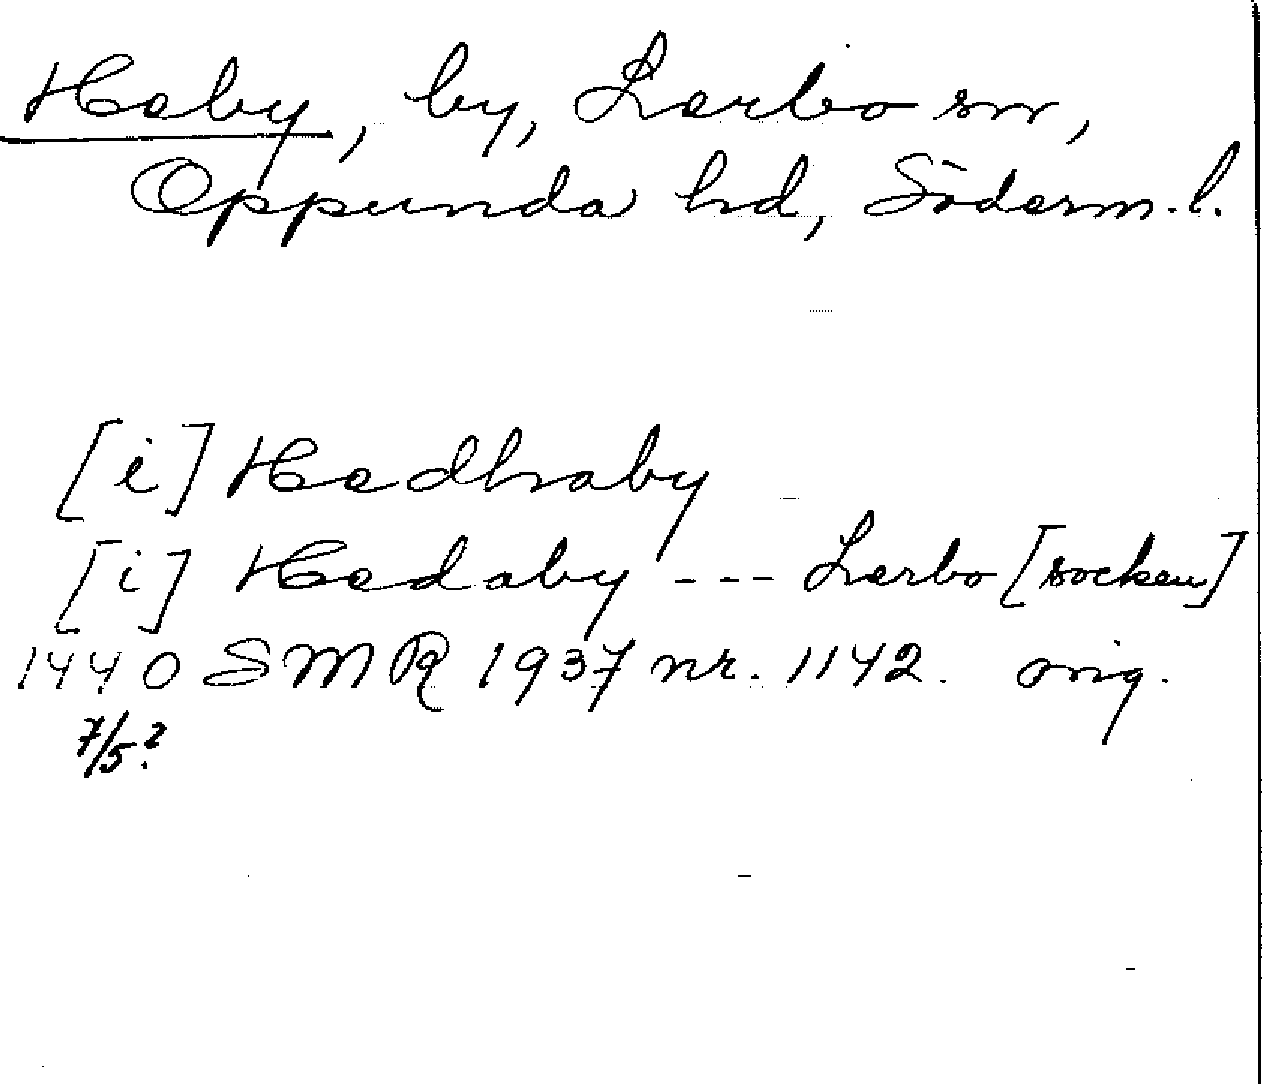 Heby, by, Lerbo sn,
Oppunda hd, Söderm. l.
[i] Hedhaby
[i] Hedaby --- Lerbo [socken]
1440 SMR 1937 nr. 1142. orig.
7/5?